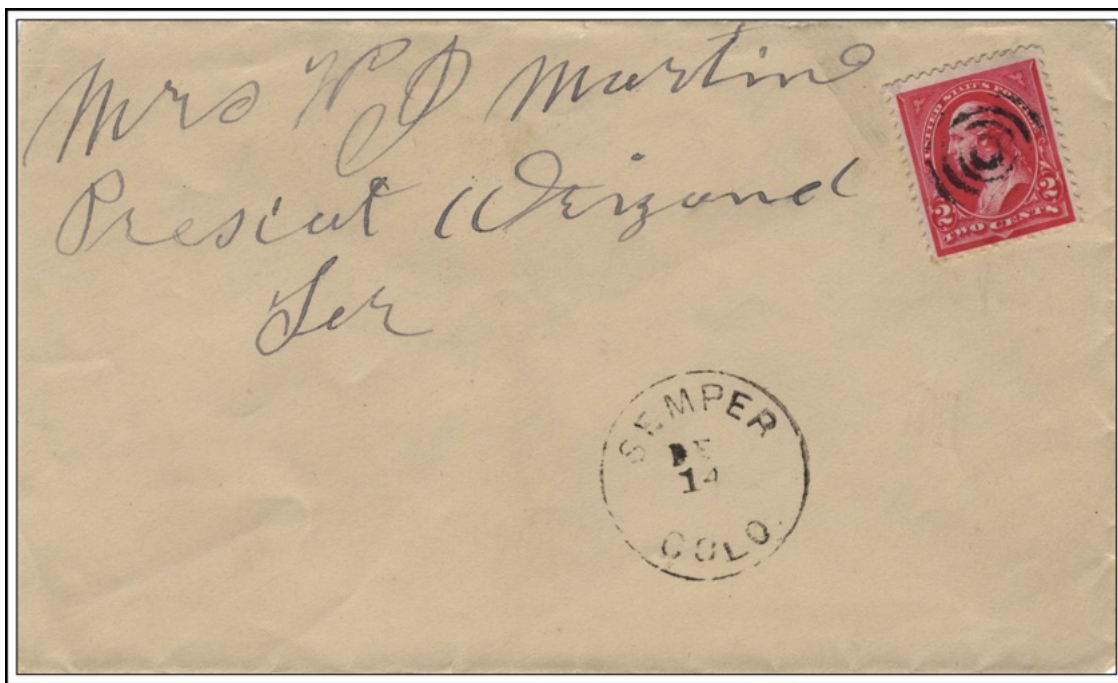 Mrs W J Martin
Presicut Arizona
Ter
UNITED STATES POSTAGE
2 2
TWO CENTS
SEMPER
DE
14
COLO.